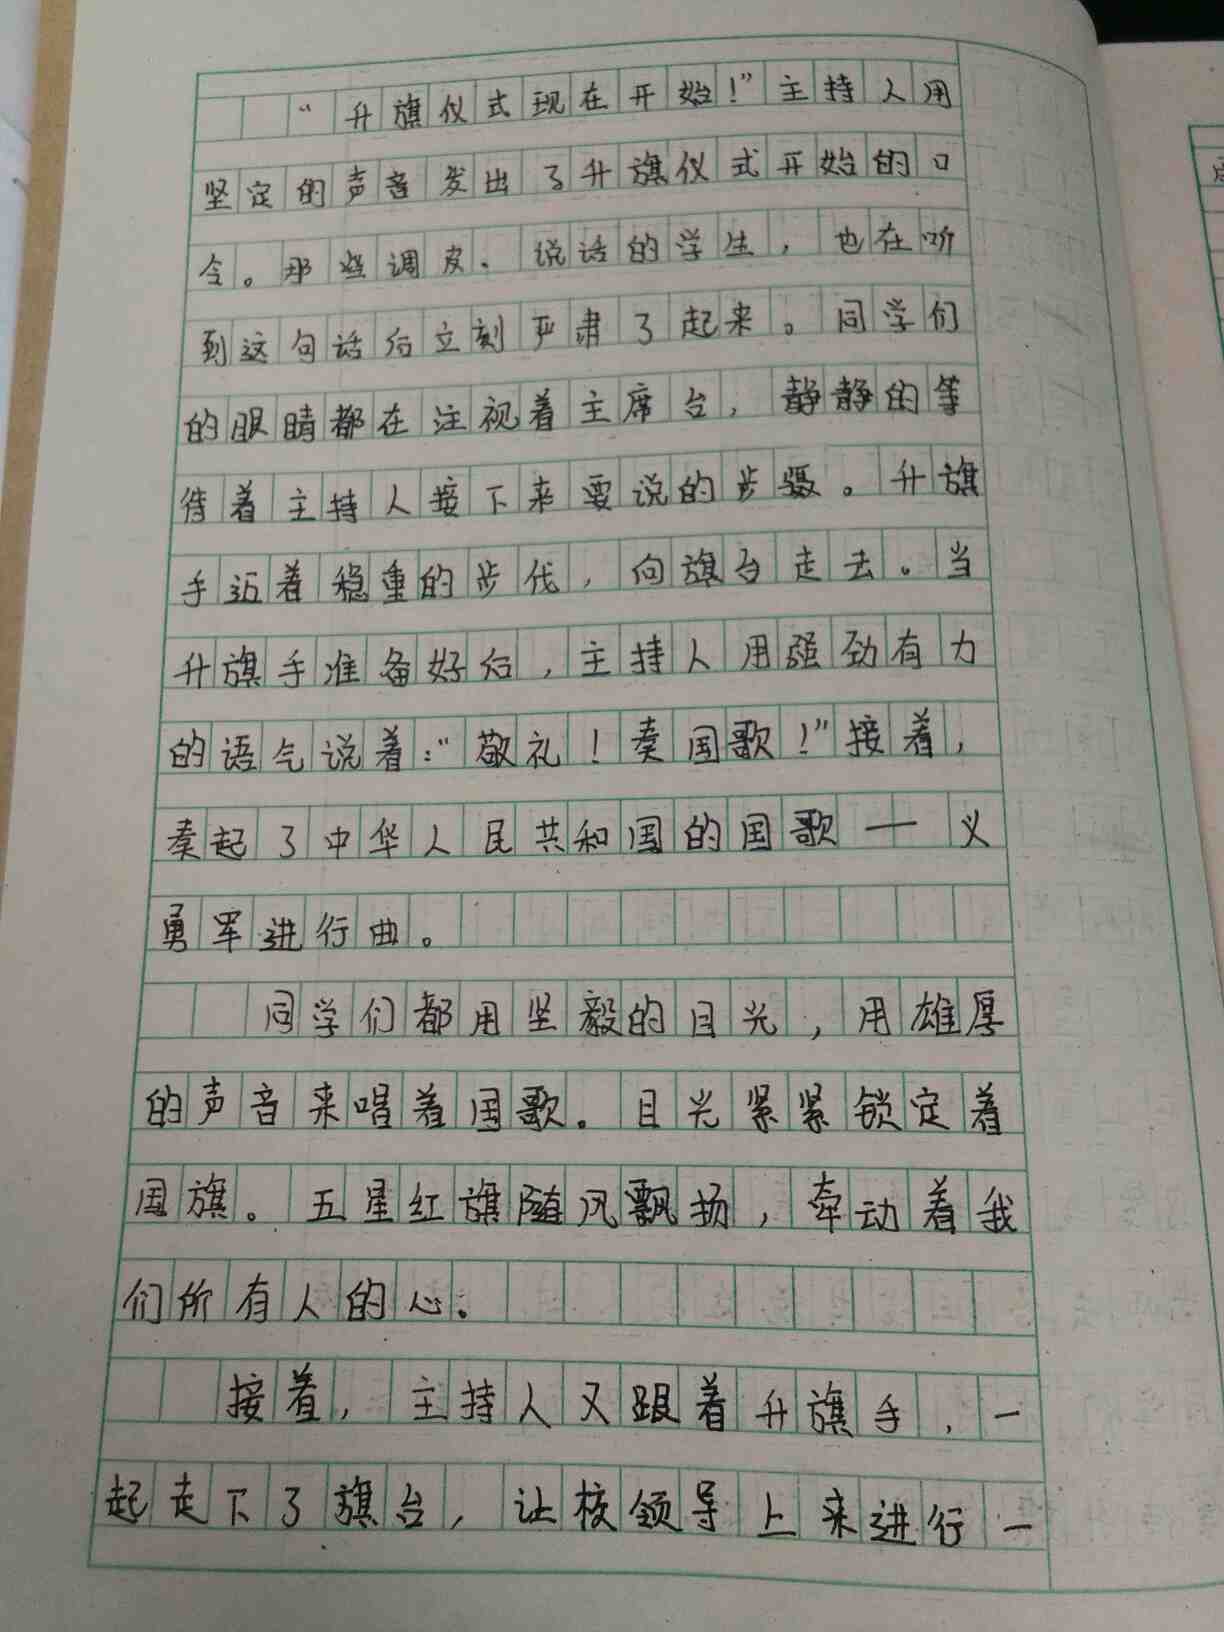 “升旗仪式现在开始！”主持人用
坚定的声音发出了升旗仪式开始的口
令。那些调皮、说话的学生，也在听
到这句话后立刻严肃了起来。同学们
的眼睛都在注视着主席台，静静的等
待着主持人接下来要说的步骤。升旗
手迈着稳重的步伐，向旗台走去。当
升旗手准备好后，主持人用强劲有力
的语气说着：“敬礼！奏国歌！”接着，
奏起了中华人民共和国的国歌一义
勇军进行曲。
同学们都用坚毅的目光，用雄厚
的声音来唱着国歌。目光紧紧锁定着
国旗。五星红旗随风飘扬，牵动着我
们所有人的心。
接着，主持人又跟着升旗手，一
起走下了旗台，让校领导上来进行一